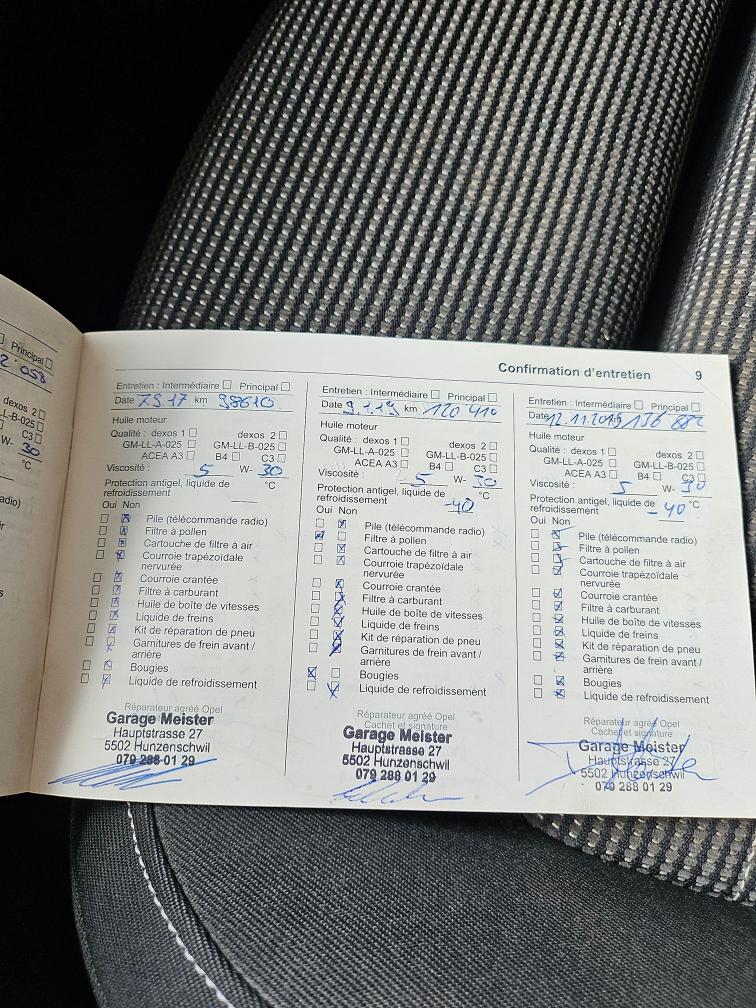 Principal
2'053
dexos 2
L-B-025
C3
W- 30
°C
adio)
ir
es
s
Confirmation d'entretien 9
Entretien : Intermédiaire Principal
Date 7.9.17 km 98610
Huile moteur
Qualité : dexos 1 dexos 2
GM-LL-A-025 GM-LL-B-025
ACEA A3 B4 C3
Viscosité : 5 W- 30
Protection antigel, liquide de
refroidissement °C
Oui Non
Pile (télécommande radio)
Filtre à pollen
Cartouche de filtre à air
Courroie trapézoïdale
nervurée
Courroie crantée
Filtre à carburant
Huile de boîte de vitesses
Liquide de freins
Kit de réparation de pneu
Garnitures de frein avant /
arrière
Bougies
Liquide de refroidissement
Réparateur agréé Opel
Garage Meister
Hauptstrasse 27
5502 Hunzenschwil
079 288 01 29
Entretien : Intermédiaire Principal
Date 9.1.19 km 120 410
Huile moteur
Qualité : dexos 1 dexos 2
GM-LL-A-025 GM-LL-B-025
ACEA A3 B4 C3
Viscosité : 5 W- 30
Protection antigel, liquide de
refroidissement -40 °C
Oui Non
Pile (télécommande radio)
Filtre à pollen
Cartouche de filtre à air
Courroie trapézoïdale
nervurée
Courroie crantée
Filtre à carburant
Huile de boîte de vitesses
Liquide de freins
Kit de réparation de pneu
Garnitures de frein avant /
arrière
Bougies
Liquide de refroidissement
Réparateur agréé Opel
Cachet et signature
Garage Meister
Hauptstrasse 27
5502 Hunzenschwil
079 288 01 29
Entretien : Intermédiaire Principal
Date
Huile moteur
Qualité : dexos 1 dexos 2
GM-LL-A-025 GM-LL-B-025
ACEA A3 B4 C3
Viscosité : 5 W- 30
Protection antigel, liquide de
refroidissement -40 °C
Oui Non
Pile (télécommande radio)
Filtre à pollen
Cartouche de filtre à air
Courroie trapézoïdale
nervurée
Courroie crantée
Filtre à carburant
Huile de boîte de vitesses
Liquide de freins
Kit de réparation de pneu
Garnitures de frein avant /
arrière
Bougies
Liquide de refroidissement
Réparateur agréé Opel
Cachet et signature
Garage Meister
Hauptstrasse 27
5502 Hunzenschwil
079 288 01 29